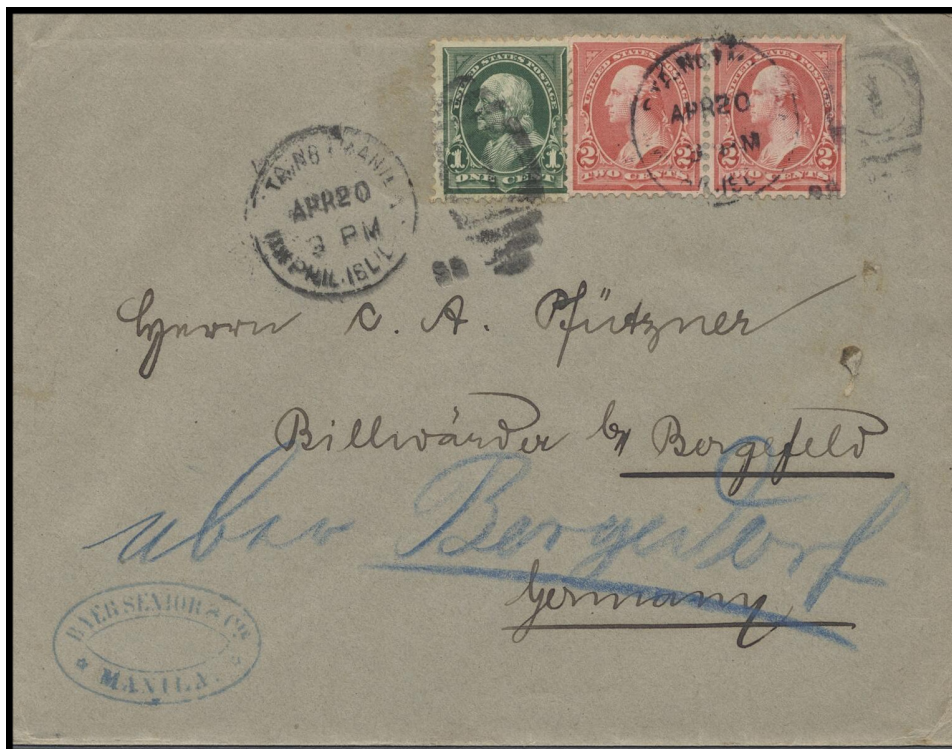 UNITED STATES POSTAGE
1 1
ONE CENT
UNITED STATES POSTAGE
2 2
TWO CENTS
UNITED STATES POSTAGE
2 2
TWO CENTS
APR 20
APR 20
3 PM
PHIL. ISL
Herrn C. A. Pfützner
Billwärder b/ Bergefeld
über Bergedorf
Germany
BAER SENIOR & Co
MANILA.